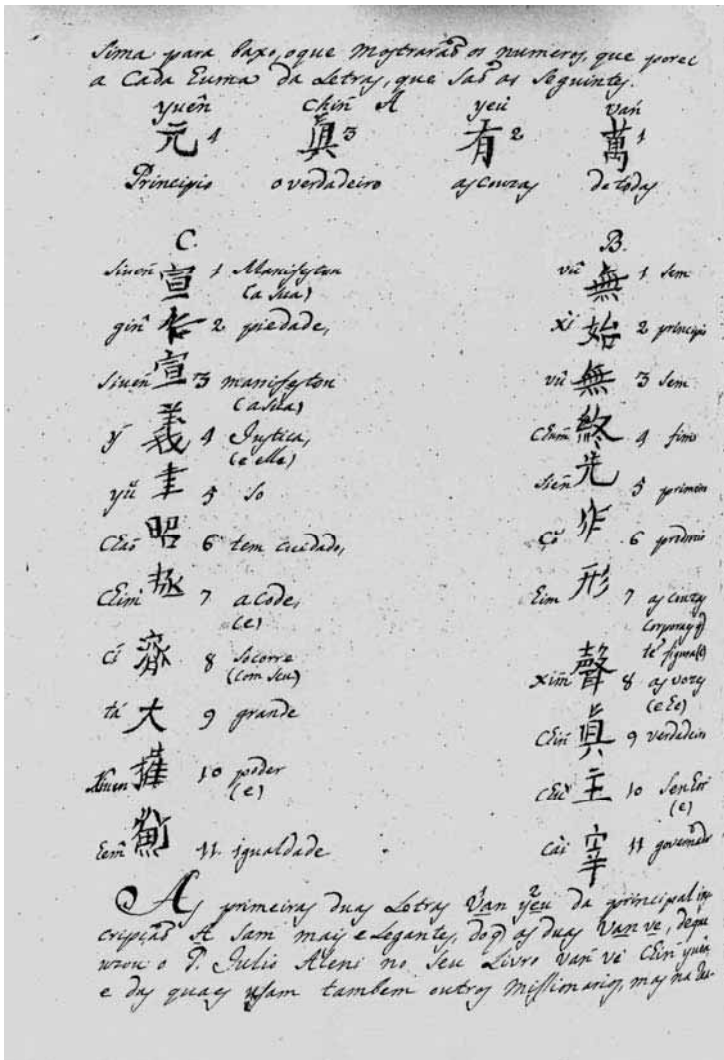 sima para baxo, o que mostrarão os numeros, que porei
a Cada huma da Letras, que São as Seguintes.
yuên chiñ A yeù van
元 4 眞 3 有 2 萬 1
Principio o verdadeiro as couzas de todas
C.
siuen 宣 1 Manifestou
(a sua)
gin 仁 2 piedade,
siuen 宣 3 manifestou
(a sua)
ý 義 4 Justica,
(e elle)
yŭ 聿 5 so
Chao 昭 6 tem cuidado,
Chim 拯 7 acode,
(e)
çí 齊 8 Socorre
(com seu)
tá 大 9 grande
權 10 poder
(e)
hem 衡 11. igualdade
B.
vû 無 1 sem
xi 始 2 principio
vû 無 3 sem
Chum 終 4 fim
sien 先 5 primeiro
ço 作 6
him 形 7 as couzas
Corporays
te figura(e)
xim 聲 8 as vozes
(e he)
Chin 眞 9 verdadeiro
Chù 主 10 Senhor
(e)
Cai 宰 11 governador
As primeiras duas Letras van yeu da principal in
cripção A sam mais elegantes, do q̃ as duas van ve, de que
uzou o P. Julio Aleni no seu Livro van vĕ Chin yuên
e das quaes usam tambem outros Missionarios, mas na de